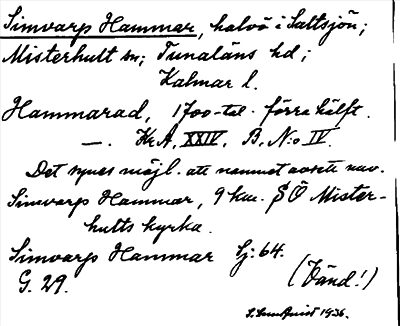 Simvarp Hammar, halvö i Saltsjön;
Misterhult sn; Tunaläns hd;
Kalmar l.
Hammarad, 1700-tal. förra hälft.
—. Kr A, XXIV, B, N:o IV.
Det synes möjl. att namnet avsett nuv.
Simvarp Hammar, 9 km. SÖ Mister-
hults kyrka.
Simvarp Hammar Sj: 64.
G. 29.
(Vänd!)
1936.